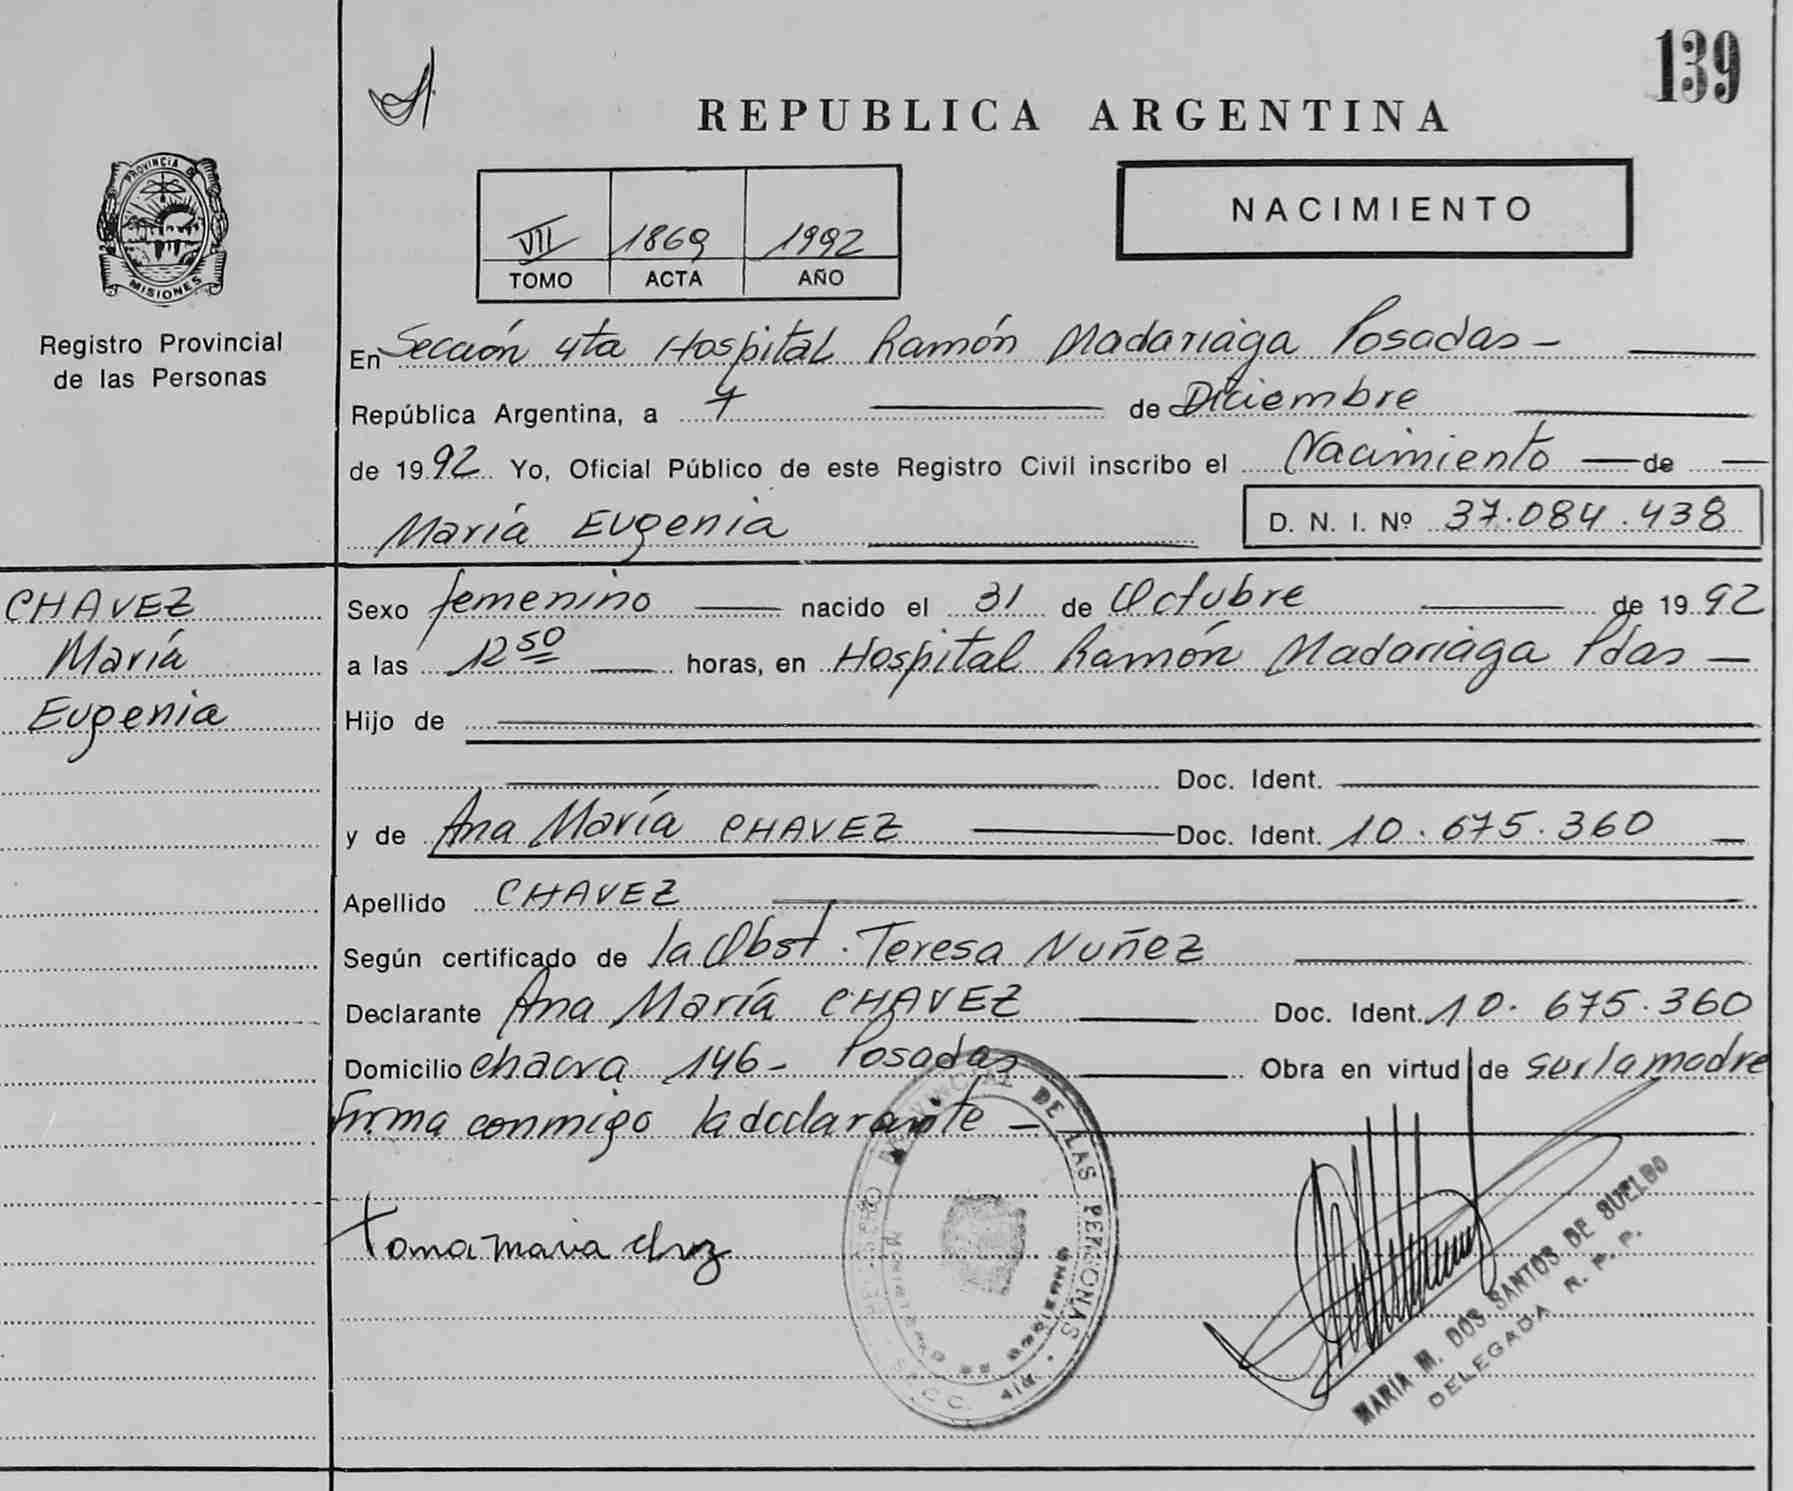 139
REPUBLICA ARGENTINA
PROVINCIA DE
MISIONES
Registro Provincial
de las Personas
NACIMIENTO
VII 1869 1992
TOMO ACTA AÑO
En Sección 4ta Hospital Ramón Madariaga Posadas -
República Argentina, a 7 de Diciembre
de 1992 Yo, Oficial Público de este Registro Civil inscribo el Nacimiento de
María Eugenia D. N. I. Nº 37.084.438
CHAVEZ
María
Eugenia
Sexo femenino nacido el 31 de Octubre de 1992
a las 12 50 horas, en Hospital Ramón Madariaga Pdas -
Hijo de
Doc. Ident.
y de Ana María CHAVEZ Doc. Ident. 10.675.360
Apellido CHAVEZ
Según certificado de la Obst. Teresa Nuñez
Declarante Ana María CHAVEZ Doc. Ident. 10.675.360
Domicilio chacra 146 - Posadas Obra en virtud de ser la madre
Firma conmigo la declarante -
PROVINCIAL DE LAS PERSONAS
MARIA M. DOS SANTOS DE SUELDO
DELEGADA R. P. P.